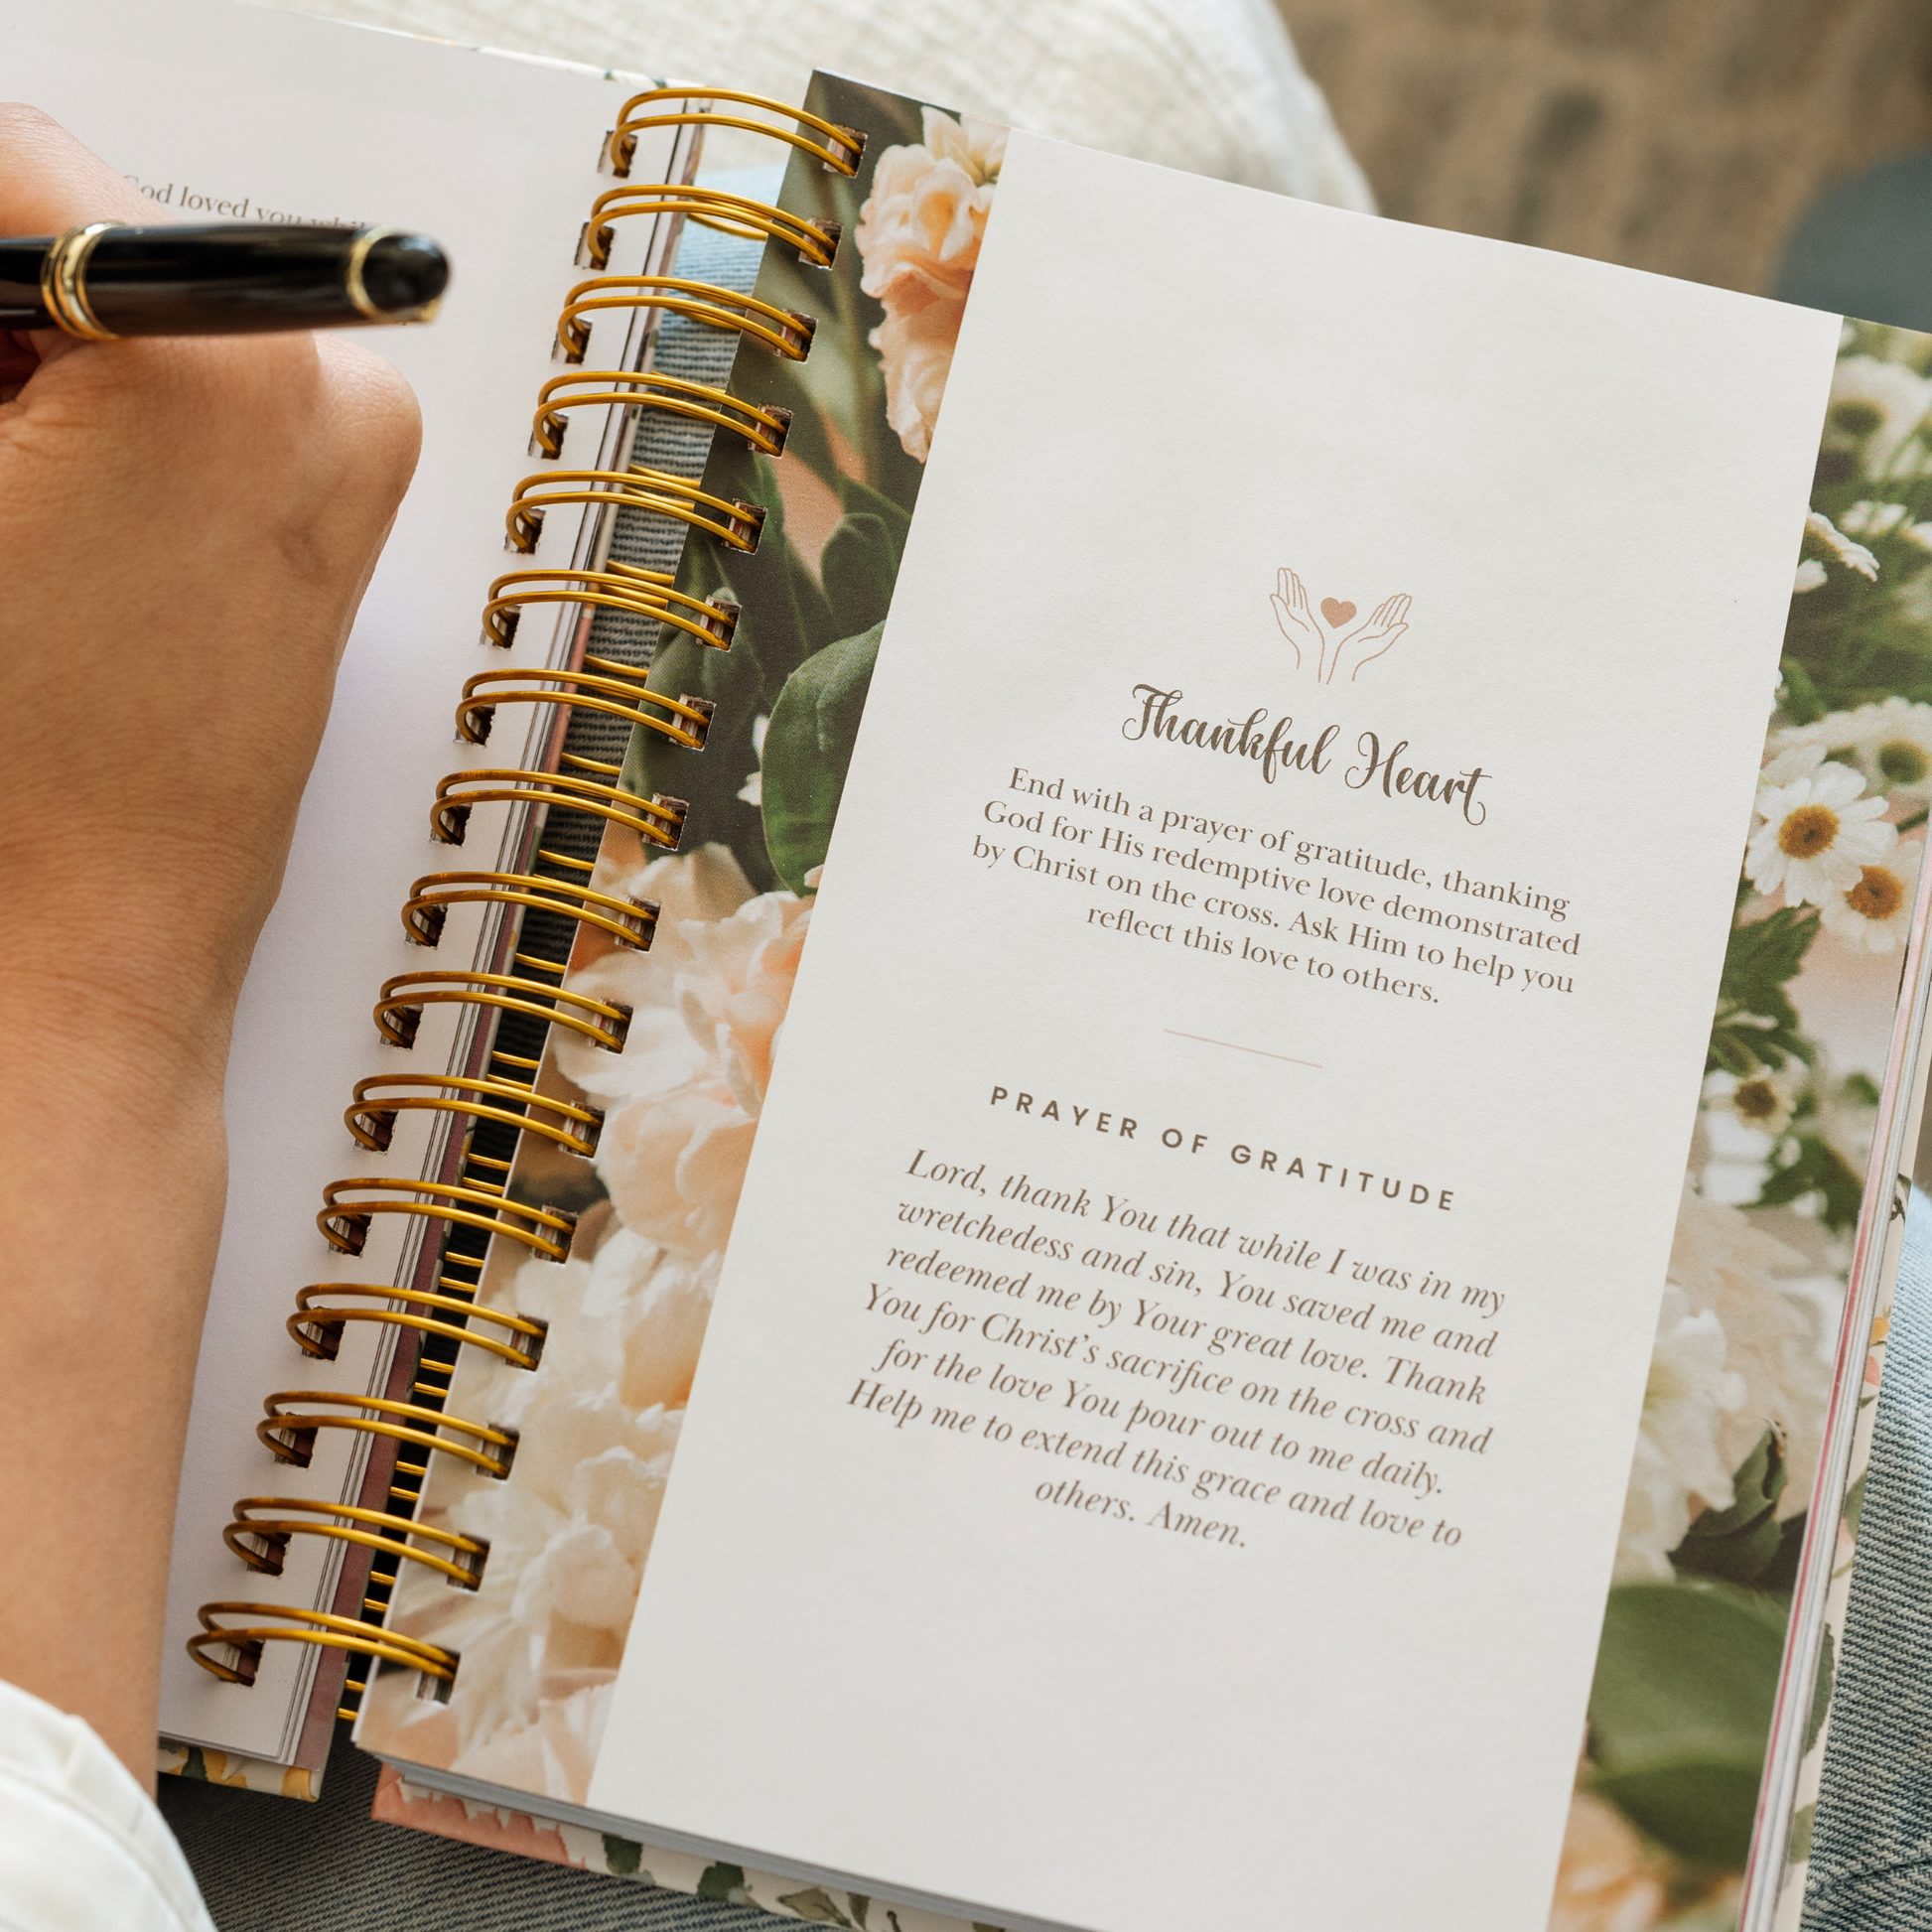 God loved you while
Thankful Heart
End with a prayer of gratitude, thanking
God for His redemptive love demonstrated
by Christ on the cross. Ask Him to help you
reflect this love to others.
PRAYER OF GRATITUDE
Lord, thank You that while I was in my
wretchedess and sin, You saved me and
redeemed me by Your great love. Thank
You for Christ's sacrifice on the cross and
for the love You pour out to me daily.
Help me to extend this grace and love to
others. Amen.